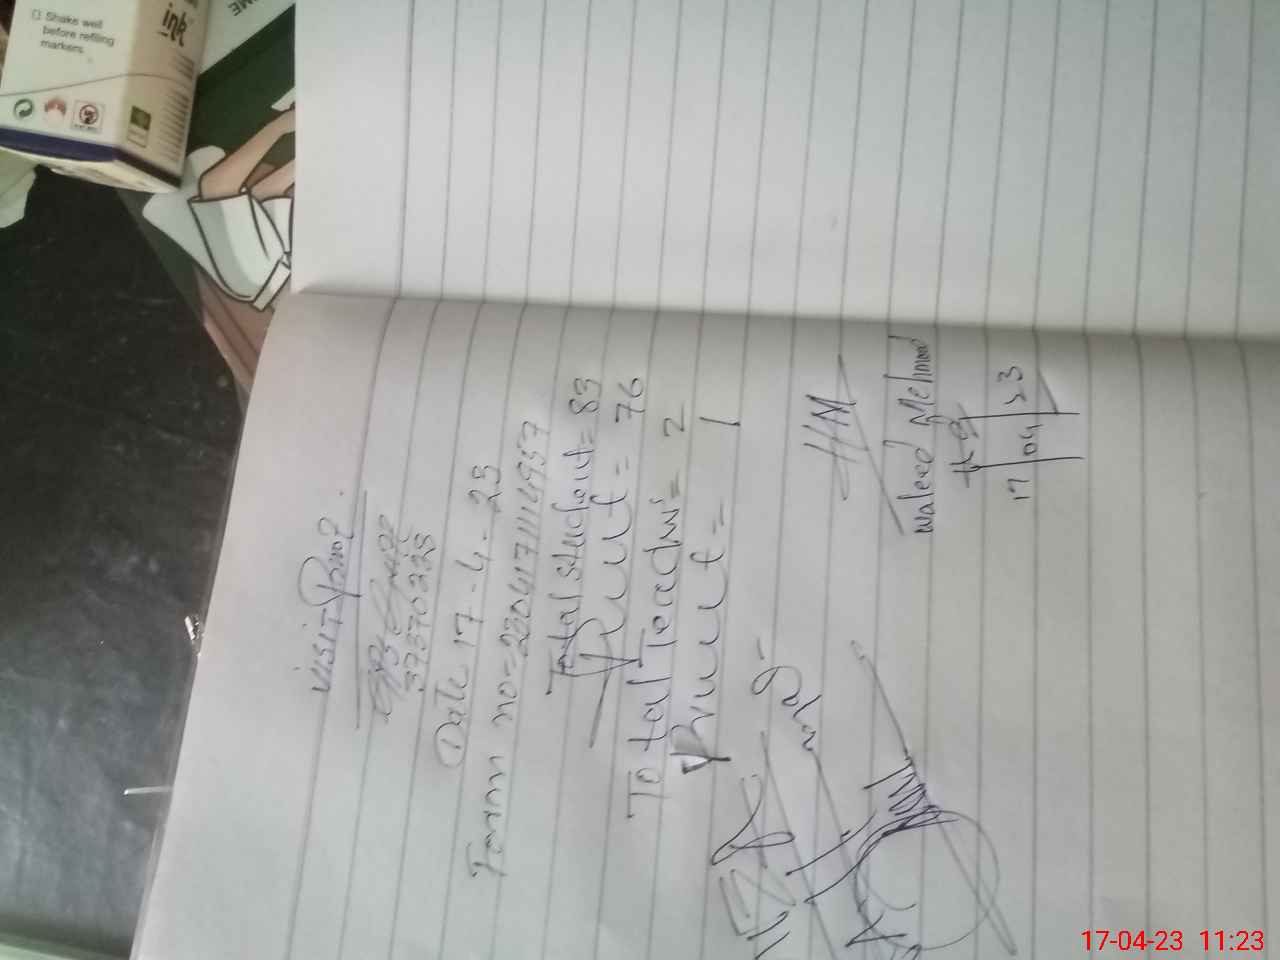 Shake well
before refilling
markers.
ink
visit Proof
37370228
Date 17-4-23
Form no=2304171114957
Total student=83
Prunt=76
Total Teachrs=2
Prunt=1
HM
waleed Mehmood
17/04/23
17-04-23 11:23